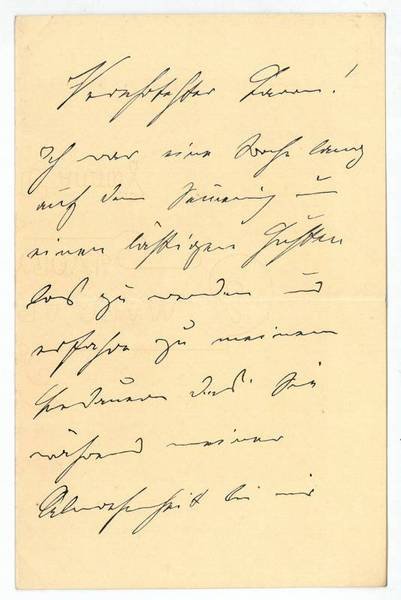 Verehrtester Baron!
Ich war eine Woche lang
auf dem Semering um
einen lästigen Husten
los zu werden und
erfahre zu meinem
Bedauern daß Sie
während meiner
Abwesenheit bei mir